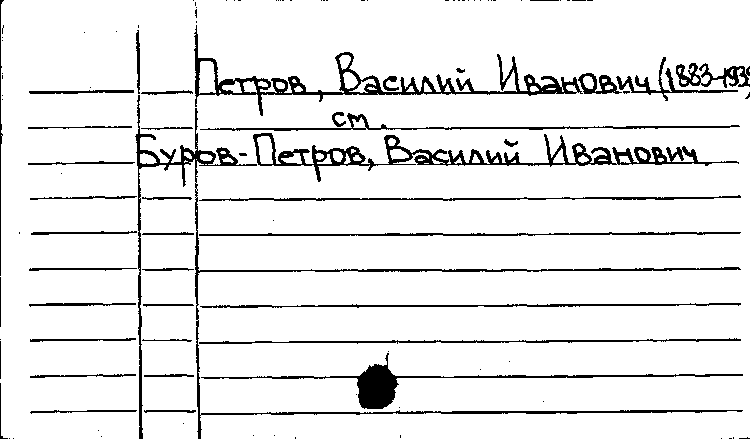 Петров, Василий Иванович (1883-1938)
см.
Буров-Петров, Василий Иванович.